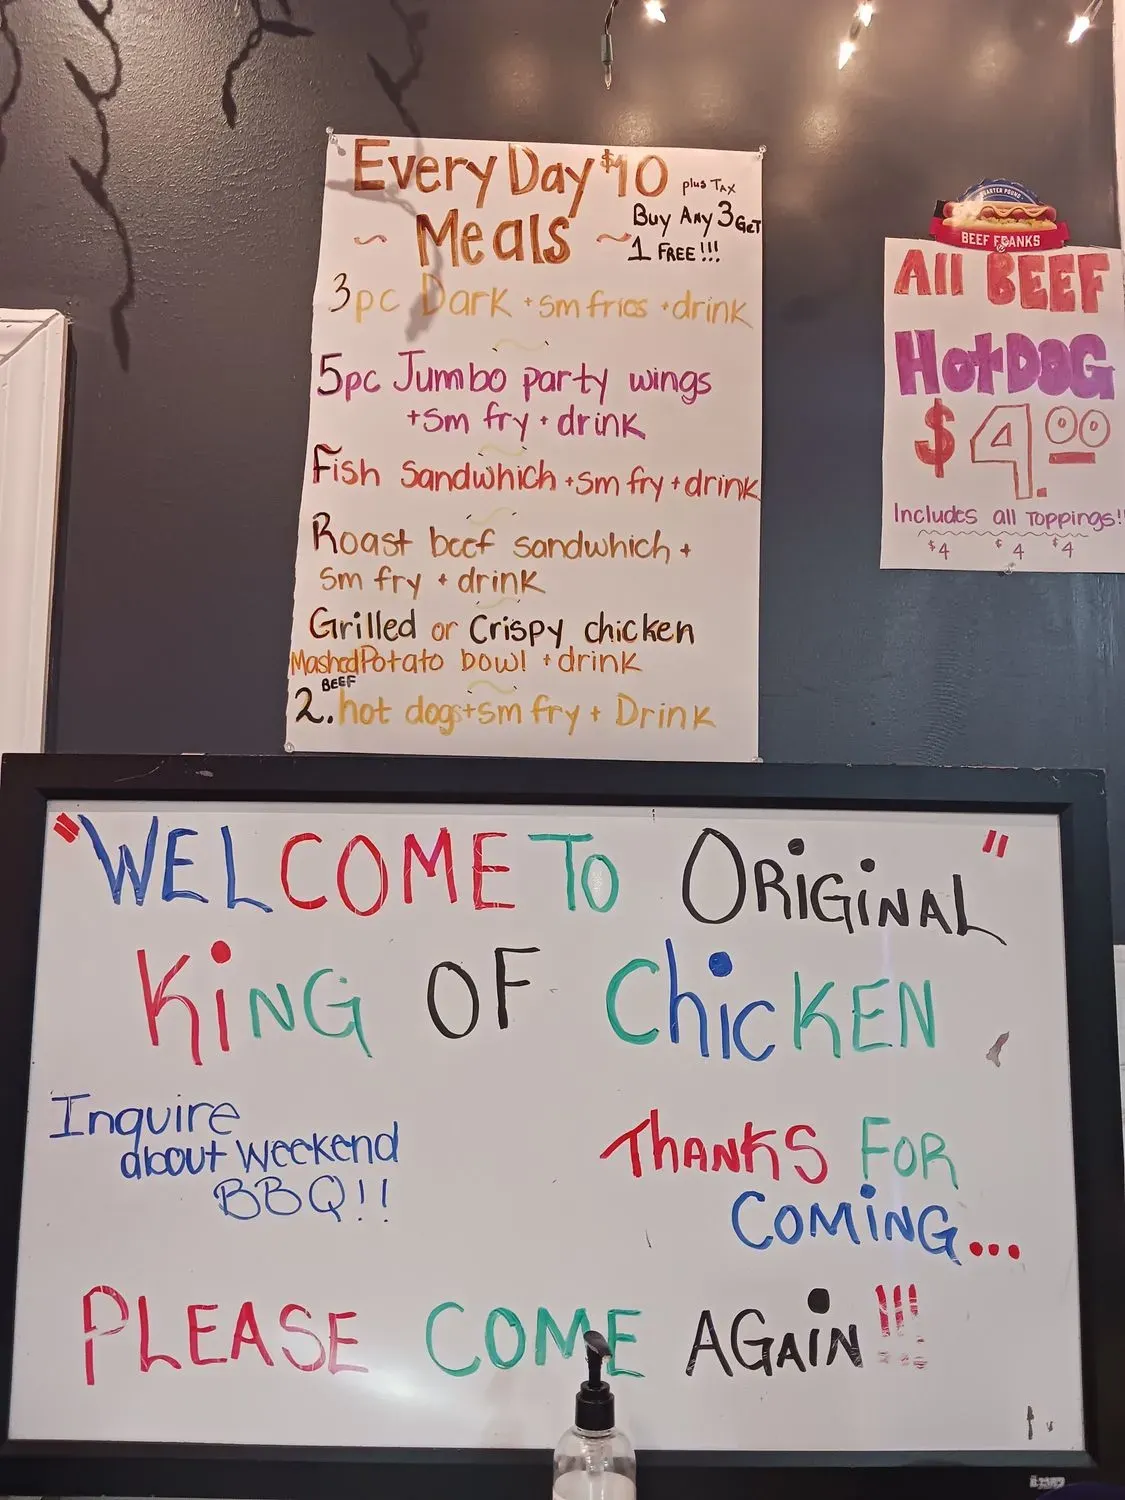 Every Day $10 plus TAX
Meals
Buy Any 3 Get
1 FREE!!!
3pc Dark + sm fries + drink
5pc Jumbo party wings
+ sm fry + drink
Fish sandwhich + sm fry + drink
Roast beef sandwhich +
sm fry + drink
Grilled or Crispy chicken
Mashed Potato bowl + drink
BEEF
2. hot dogs + sm fry + Drink
QUARTER POUND
BEEF FRANKS
All BEEF
Hot DOG
$4.00
Includes all Toppings!!
$4 $4 $4
"WELCOME TO ORiGiNAL"
KiNG OF ChicKEN
Inquire
about weekend
BBQ!!
THANKS FOR
COMiNG...
PLEASE COME AGAiN!!!